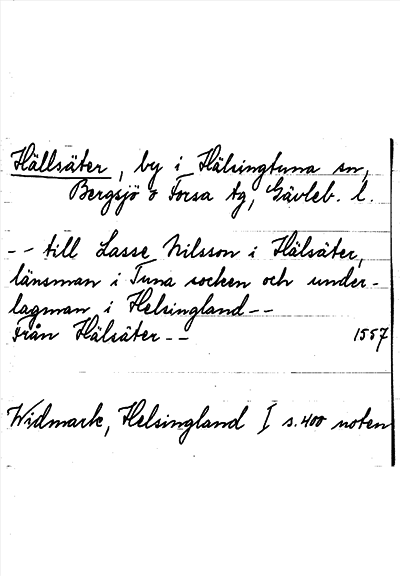 Hällsäter, by i Hälsingtuna sn,
Bergsjö o Forsa tg, Gävleb. l.
-- till Lasse Nilsson i Hälsäter,
länsman i Tuna socken och under-
lagman i Helsingland --
Från Hälsäter -- 1557
Widmark, Helsingland I s. 400 noten